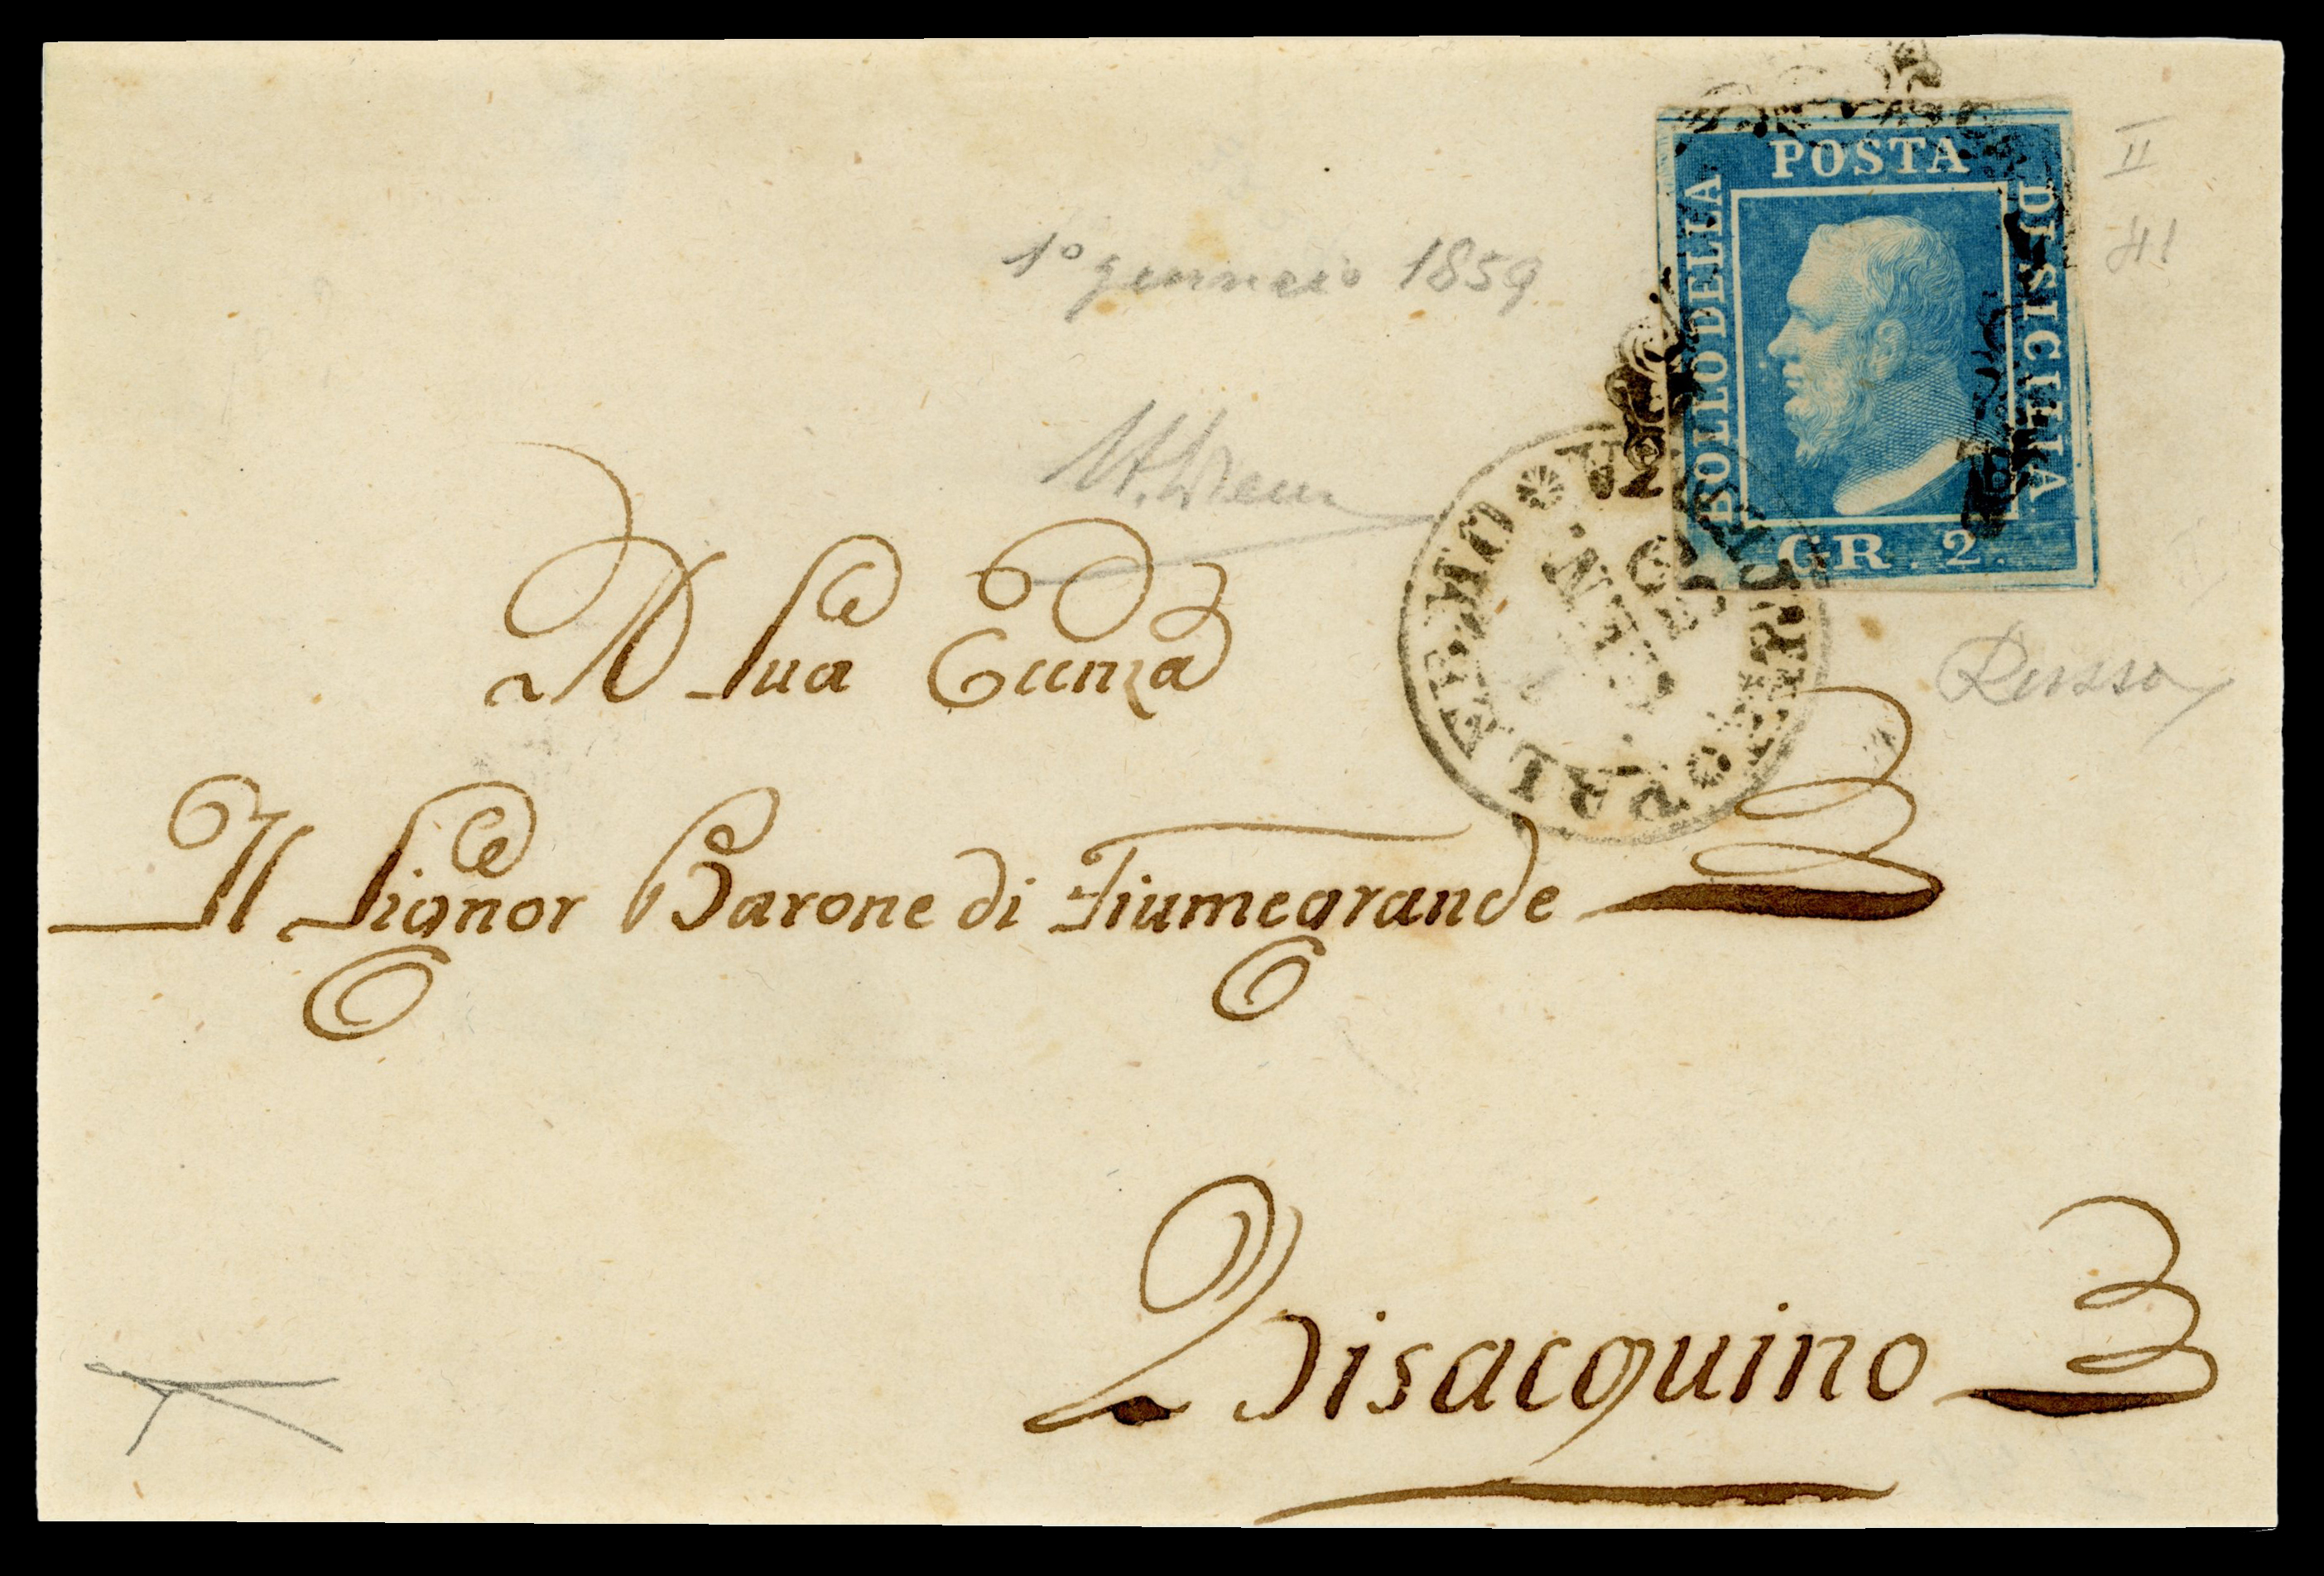 POSTA
BOLLO DELLA
DI SICILIA
GR. 2.
II
41
1° gennaio 1859
A Sua Eccnza
Russo
Il Signor Barone di Fiumegrande
Bisacquino